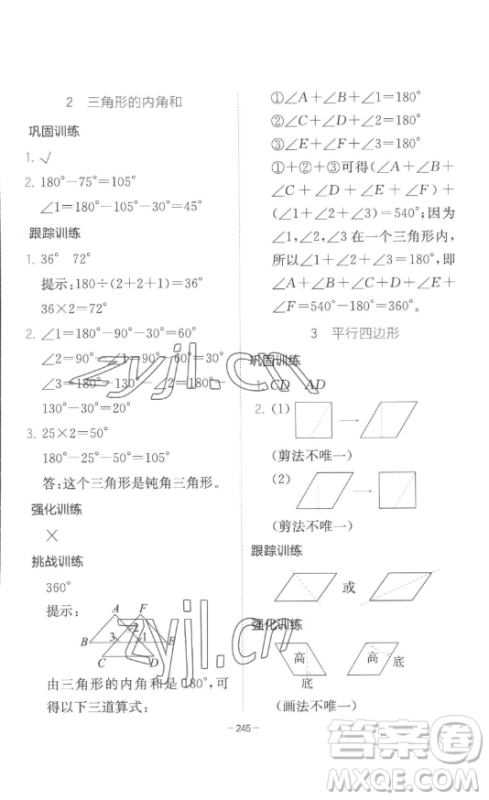 2 三角形的内角和
巩固训练
1. √
2. 180°－75°＝105°
∠1＝180°－105°－30°＝45°
跟踪训练
1. 36° 72°
提示：180÷(2＋2＋1)＝36°
36×2＝72°
2. ∠1＝180°－90°－30°＝60°
∠2＝90° ∠1＝90°－60°＝30°
∠3＝180°－130° ∠2＝180°－
130°－30°＝20°
3. 25×2＝50°
180°－25°－50°＝105°
答：这个三角形是钝角三角形。
强化训练
×
挑战训练
360°
提示：
A F
2
3 1
B E
C D
由三角形的内角和是180°，可
得以下三道算式：
①∠A＋∠B＋∠1＝180°
②∠C＋∠D＋∠2＝180°
③∠E＋∠F＋∠3＝180°
①＋②＋③可得(∠A＋∠B＋
∠C＋∠D＋∠E＋∠F)＋
(∠1＋∠2＋∠3)＝540°；因为
∠1，∠2，∠3在一个三角形内，
所以∠1＋∠2＋∠3＝180°，
∠A＋∠B＋∠C＋∠D＋∠E＋
∠F＝540°－180°＝360°。
3 平行四边形
巩固训练
1. CD AD
2. (1)
(剪法不唯一)
(2)
(剪法不唯一)
跟踪训练
或
强化训练
高 底 高 底
(画法不唯一)
－245－
zyjl.cn
zyjl.cn
答案圈
MXQE.COM